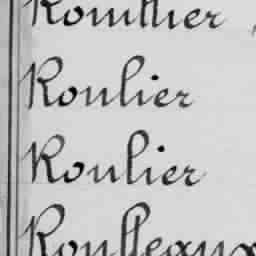 Roulier
Roulier
Roulleaux